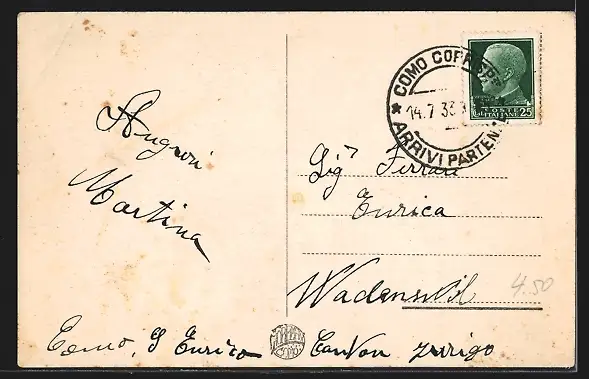 Auguri
Martina
Como, S Enrico
COMO CORRISP
14.7 33
ARRIVI PARTEN
POSTE
ITALIANE 25
Sigra Ferrari
Enrica
Wadenswil
Canton Zurigo
4.50